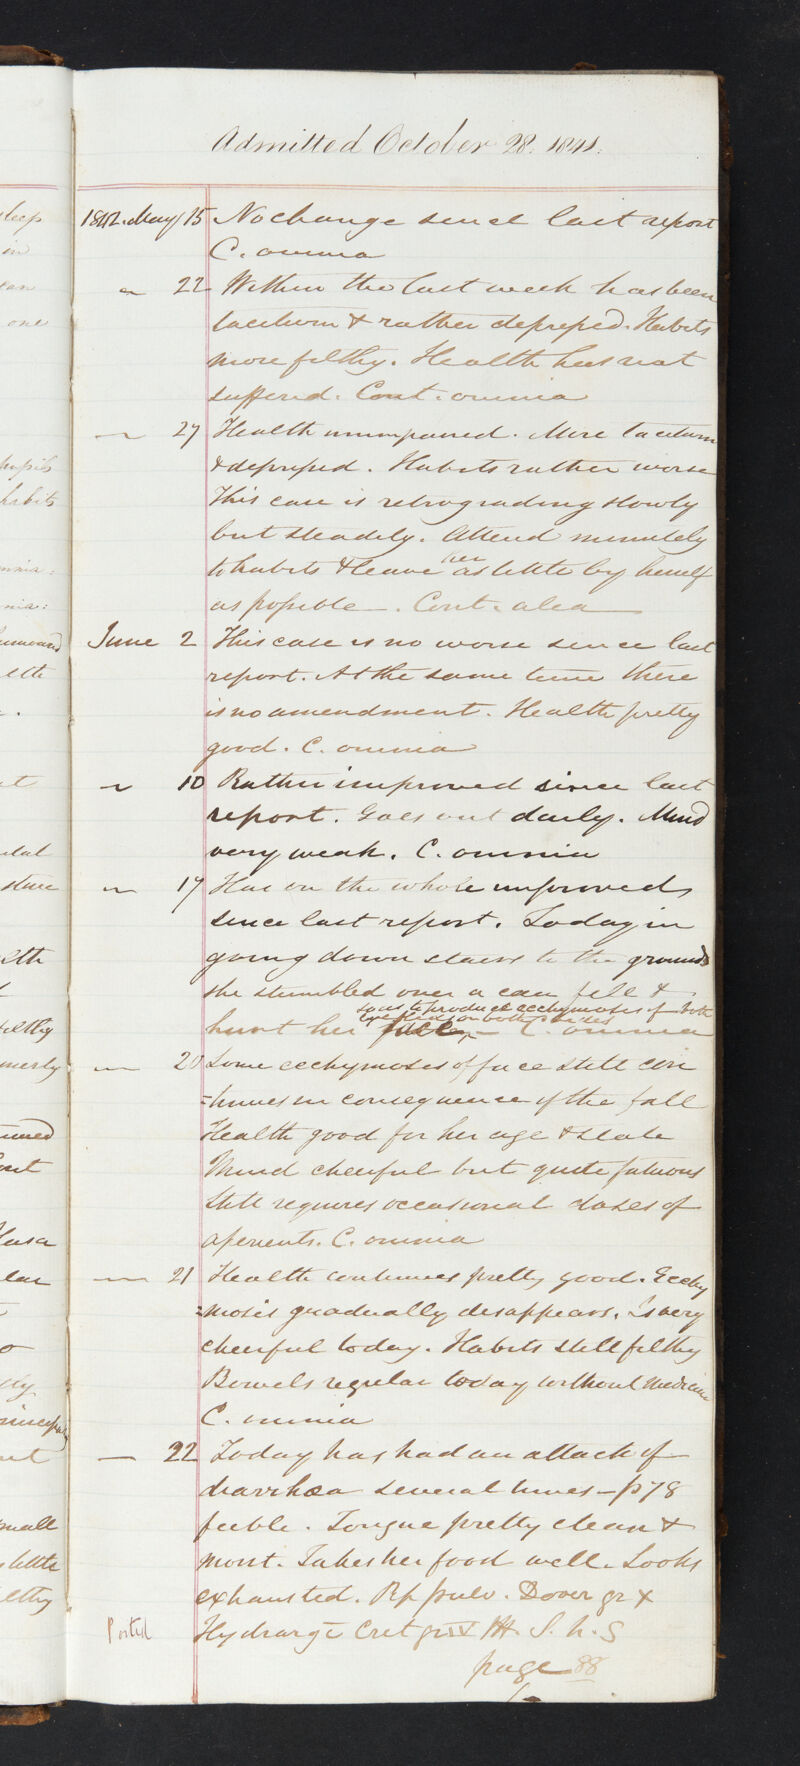 Admitted October 28. 1841.
1842. May 15 No change since last report
C. omnia
" 22 Within the last week has been
taciturn & rather depressed. Habits
more filthy. Health has not
suffered. Cont. omnia
" 27 Health unimpaired. More taciturn
& depressed. Habits rather worse
This case is retrograding slowly
but steadily. Attend minutely
to habits & leave her as little by herself
as possible. Cont. alia
June 2 This case is no worse since last
report. At the same time there
is no amendment. Health pretty
good. C. omnia
" 10 Rather improved since last
report. Goes out daily. Mind
very weak. C. omnia
" 17 Has on the whole improved
since last report. Today in
going down stairs to the grounds
she stumbled over a can fell &
so as to produce ecchymoses of both
eyelids on both sides
hurt her face. — C. omnia
" 20 Some ecchymoses of face still con
=tinues in consequence of the fall
Health good for her age & state
Mind cheerful but quite fatuous
Still requires occasional doses of
aperients. C. omnia
" 21 Health continues pretty good. Ecchy
=mosis gradually disappears. Is very
cheerful today. Habits still filthy
Bowels regular today without medicine
C. omnia
— 22 Today has had an attack of
diarrhœa several times – p 78
feeble. Tongue pretty clean &
moist. Takes her food well. Looks
exhausted. Rp pulv. Dover gr x
Posted Hydrarg c Cret grs Ft. S. h. S
page 88